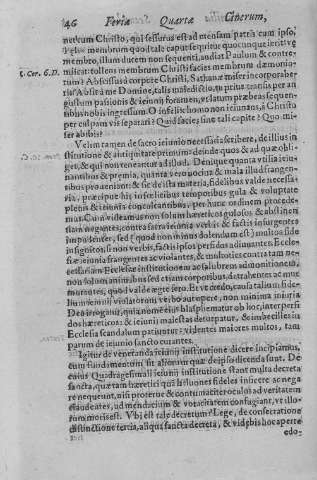 46 Feria Quarta Cinerum,
netecum Christo, qui sessurus est ad mensam patris cum ipso,
membro, illum ducem non sequenti, audiat Paulum & contre-
1. Cor. 6. D. miscat: tollens membrum Christi faciet membrum dæmonio-
rum? Abscissus à corpore Christi, Sathanæ miser incorporabe-
ris? Absit à me Domine, talis maledictio, tu prius transis per an-
gustum passionis & ieiunij foramen,
nouis ingressum. O infelix homo non ieiunans, à Christo
per culpam vis separari? Quid facies sine tali capite? Quo mi-
ser abibis?
Velim tamen de sacro ieiunio necessaria scribere, de illius in-
stitutione & antiquitate primum: deinde quos & ad quæ obli-
get, & qui non teneantur ad illud. Denique quanta vtilia ieiu-
nantibus & præmia, quanta vero nocua & mala illud frangen-
tibus proueniant: & sic de ista materia, fidelibus valde necessa-
ria, præcipue his infelicibus temporibus gula & voluptate
plenis & ieiunia conculcantibus, per hunc ordinem procede-
mus. Cum videamus non solum hæreticos gulosos & abstinen-
tiam negantes, contra sacra ieiunia verbis & factis insurgentes
impudenter, sed (quod non minus dolendum est) multos sido
insignitos, si non verbis, factis ipsos perfidos adiuuantes. Ecclesiæ
ieiunia frangentes ac violantes, & multoties contra tam ne-
cessariam Ecclesiæ institutionem ac salubrem admonitionem,
non solum animabus sed etiam corporibus, detrahentes ac mur-
murantes, quod valde ægre fero. Et vt credo, causa talium fide-
lium ieiunij violatorum verbo aut opere, non minima iniuria
Deo irrogatur, quia nomen eius blasphematur ob hoc, inter perfi-
dos hæreticos: & ieiunij maiestas deturpatur, & imbecilles in
Ecclesia scandalum patiuntur: videntes maiores multos, tam
parum de ieiunio sancto curantes.
Igitur de veneranda ieiunij institutione dicere incipiamus,
cum fundamentum sit aliorum quæ deipso dicenda sunt. De
cuius Quadragesimali ieiunij institutione stant multa decreta
sancta, quæ tam hæretici quàm falsi fideles inficere ac nega-
re nequeunt, nisi proterue & contumaciter oculos ad veritatem
claudentes, ad mendacium & voracitatem confugiant, vt illo-
rum moris est. Vbi est tale decretum? Lege, de consecratione
distinctione tertia, aliqua sancta decreta, & videbis hoc aperte
edo-